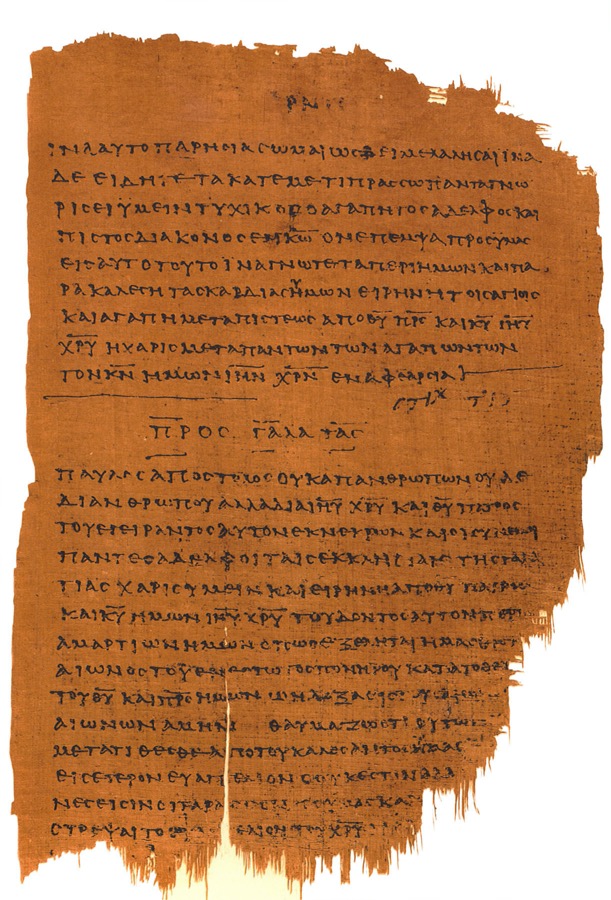 ΙΝΑ ΑΥΤΟ ΠΑΡΗΣΙΑΣΩΜΑΙ ΩΣ ΔΕΙ ΜΕ ΛΑΛΗΣΑΙ ΙΝΑ
ΔΕ ΕΙΔΗΤΕ ΤΑ ΚΑΤ ΕΜΕ ΤΙ ΠΡΑΣΣΩ ΠΑΝΤΑ ΓΝΩ
ΡΙΣΕΙ ΥΜΕΙΝ ΤΥΧΙΚΟΣ Ο ΑΓΑΠΗΤΟΣ ΑΔΕΛΦΟΣ ΚΑΙ
ΠΙΣΤΟΣ ΔΙΑΚΟΝΟΣ ΕΝ ΚΩ ΟΝ ΕΠΕΜΨΑ ΠΡΟΣ ΥΜΑΣ
ΕΙΣ ΑΥΤΟ ΤΟΥΤΟ ΙΝΑ ΓΝΩΤΕ ΤΑ ΠΕΡΙ ΗΜΩΝ ΚΑΙ ΠΑ
ΡΑΚΑΛΕΣΗ ΤΑΣ ΚΑΡΔΙΑΣ ΥΜΩΝ ΕΙΡΗΝΗ ΤΟΙΣ ΑΓΙΟΙΣ
ΚΑΙ ΑΓΑΠΗ ΜΕΤΑ ΠΙΣΤΕΩΣ ΑΠΟ ΘΥ ΠΡΣ ΚΑΙ ΚΥ ΙΗΥ
ΧΡΥ Η ΧΑΡΙΣ ΜΕΤΑ ΠΑΝΤΩΝ ΤΩΝ ΑΓΑΠΩΝΤΩΝ
ΤΟΝ ΚΝ ΗΜΩΝ ΙΗΝ ΧΡΝ ΕΝ ΑΦΘΑΡΣΙΑ
ΠΡΟΣ ΓΑΛΑΤΑΣ
ΠΑΥΛΟΣ ΑΠΟΣΤΟΛΟΣ ΟΥΚ ΑΠ ΑΝΘΡΩΠΩΝ ΟΥΔΕ
ΔΙ ΑΝΘΡΩΠΟΥ ΑΛΛΑ ΔΙΑ ΙΗΥ ΧΡΥ ΚΑΙ ΘΥ ΠΑΤΡΟΣ
ΤΟΥ ΕΓΕΙΡΑΝΤΟΣ ΑΥΤΟΝ ΕΚ ΝΕΚΡΩΝ ΚΑΙ ΟΙ ΣΥΝ ΕΜΟΙ
ΠΑΝΤΕΣ ΑΔΕΛΦΟΙ ΤΑΙΣ ΕΚΚΛΗΣΙΑΙΣ ΤΗΣ ΓΑΛΑ
ΤΙΑΣ ΧΑΡΙΣ ΥΜΕΙΝ ΚΑΙ ΕΙΡΗΝΗ ΑΠΟ ΘΥ ΠΑΤΡΟΣ
ΚΑΙ ΚΥ ΗΜΩΝ ΙΗΥ ΧΡΥ ΤΟΥ ΔΟΝΤΟΣ ΑΥΤΟΝ ΠΕΡΙ
ΑΜΑΡΤΙΩΝ ΗΜΩΝ ΟΠΩΣ ΕΞΕΛΗΤΑΙ ΗΜΑΣ ΕΚ ΤΟΥ
ΑΙΩΝΟΣ ΤΟΥ ΕΝΕΣΤΩΤΟΣ ΠΟΝΗΡΟΥ ΚΑΤΑ ΤΟ ΘΕΛ
ΤΟΥ ΘΥ ΚΑΙ ΠΡΣ ΗΜΩΝ Ω Η ΔΟΞΑ ΕΙΣ
ΑΙΩΝΩΝ ΑΜΗΝ ΘΑΥΜΑΖΩ ΟΤΙ ΟΥΤΩΣ
ΜΕΤΑΤΙΘΕΣΘΕ ΑΠΟ ΤΟΥ ΚΑΛΕΣΑΝΤΟΣ ΥΜΑΣ
ΕΙΣ ΕΤΕΡΟΝ ΕΥΑΓΓΕΛΙΟΝ Ο ΟΥΚ ΕΣΤΙΝ ΑΛΛ
ΝΕΣ ΕΙΣΙΝ ΟΙ ΤΑΡΑΣ ΥΜΑΣ ΚΑΙ
ΣΤΡΕΨΑΙ ΤΟ ΕΛΙΟΝ ΤΟΥ ΧΡΥ